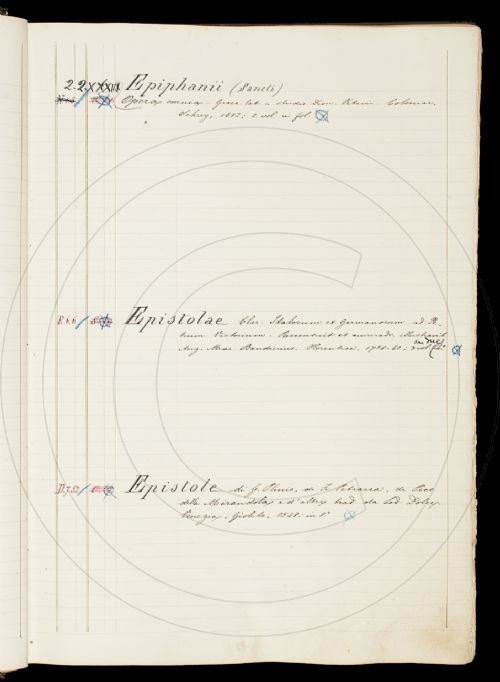 2.2.XXXIX Epiphanii (Sancti)
Opera omnia. Graec. lat. studio Dion. Petavii. Coloniae.
Schrey, 1682; 2 vol in fol
R.6.6 Epistolae Clar. Italorum et Germanorum ad P.
trum Victorium. Recensuit et animadv. illustravit
Ang. Mar. Bandinius. Florentiae, 1758-60; vol
D.7.52 Epistole di G. Plinio, di F. Petrarca, di Pico
della Mirandola e d'altri trad. da Lod. Dolce
Venezia, Giolito, 1548; in 8°